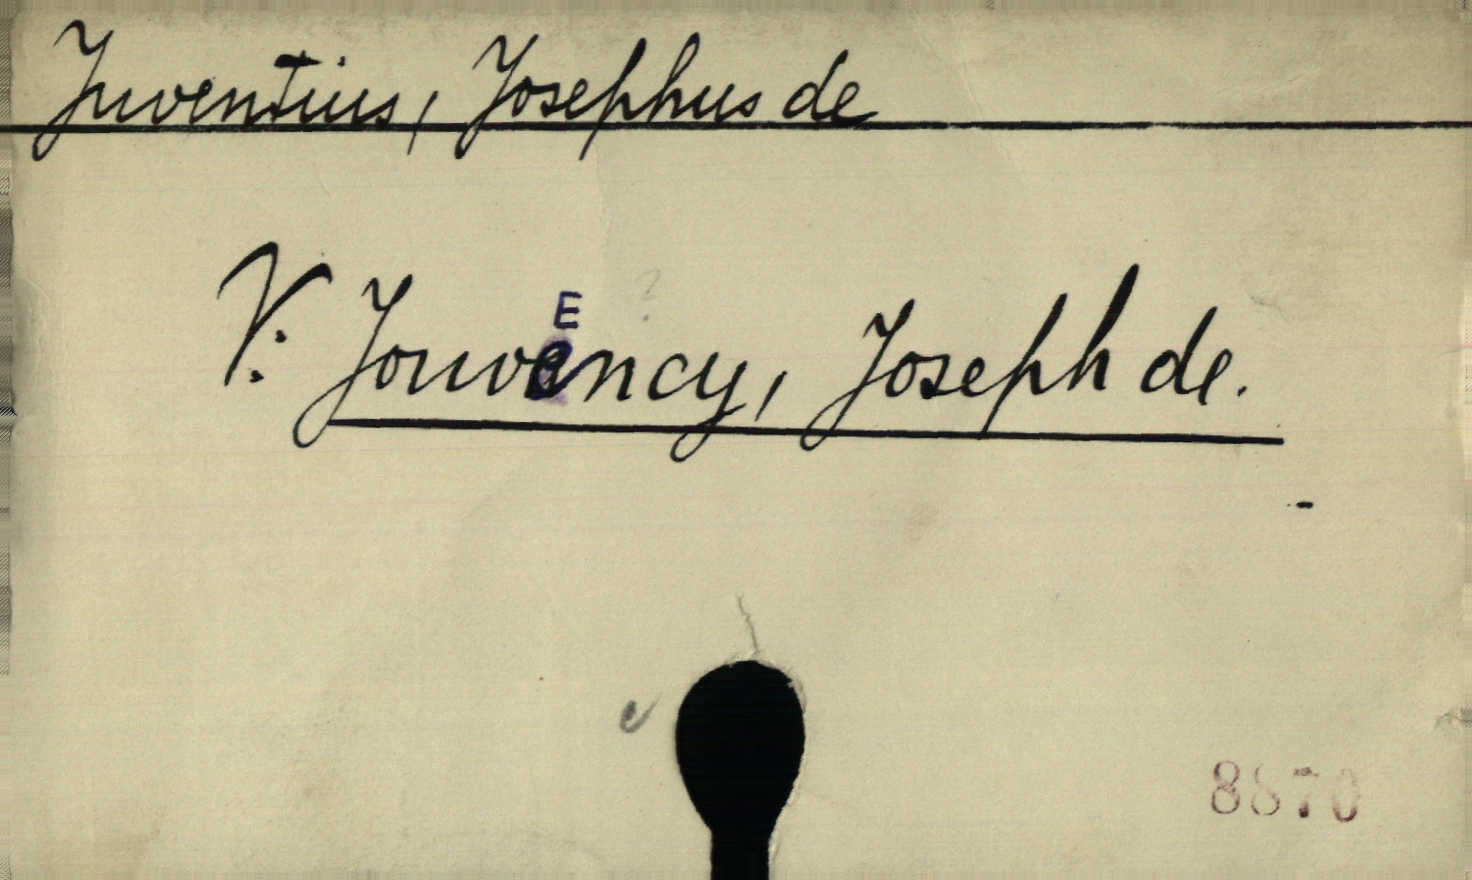 Juventius, Josephus de
V: Jouvency, Joseph de.
E
?
8870